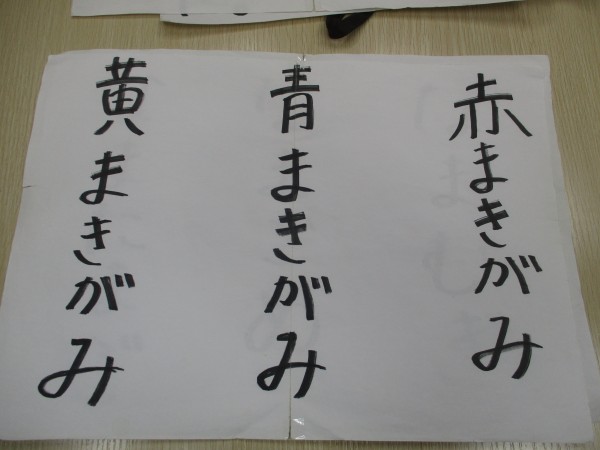 赤まきがみ
青まきがみ
黄まきがみ